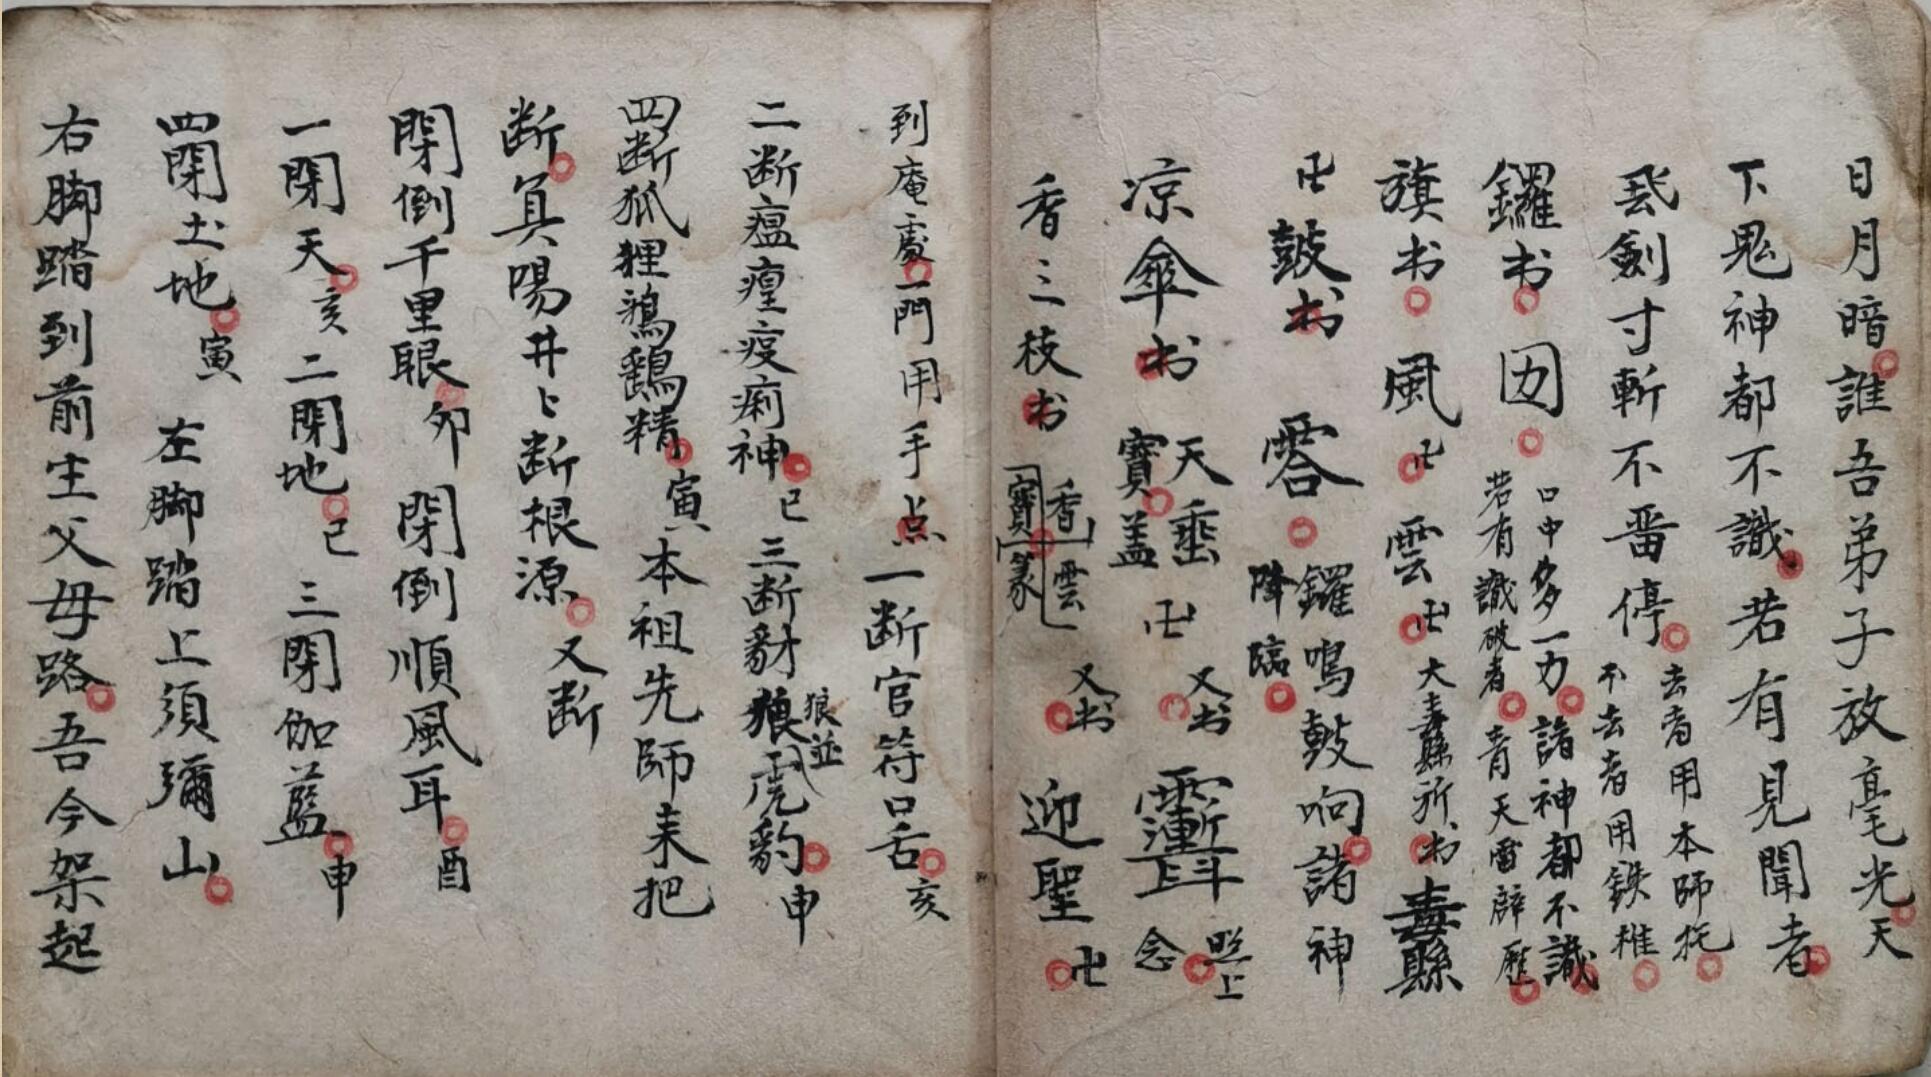 日月暗誰吾弟子放毫光天
下鬼神都不識若有見聞者
飛劍寸斬不畱停
去者用本師托
不去者用鉄椎
鑼书 囡
口中多一力諸神都不識
若有識破者青天雷辟歷
旗书 風卍 雲卍 大毒縣所书 毒縣
卍 鼓书 零
鑼鳴鼓响諸神
降臨
凉傘书
天垂
寶盖
卍 又书 斗 照上
念
香三枝书
香雲
寶篆
又书 迎聖 卍
到庵處一門用手点一断官符口舌亥
二断瘟瘟疫痢神 已 三断豺狼虎豹 申
狼並
四断狐狸鴉鷄精 寅 本祖先師来把
断真陽井上断根源 又断
閉倒千里眼 卯 閉倒順風耳 酉
一閉天 亥 二閉地 已 三閉伽藍 申
四閉土地 寅 左脚踏上須彌山
右脚踏到前生父母路吾今架起